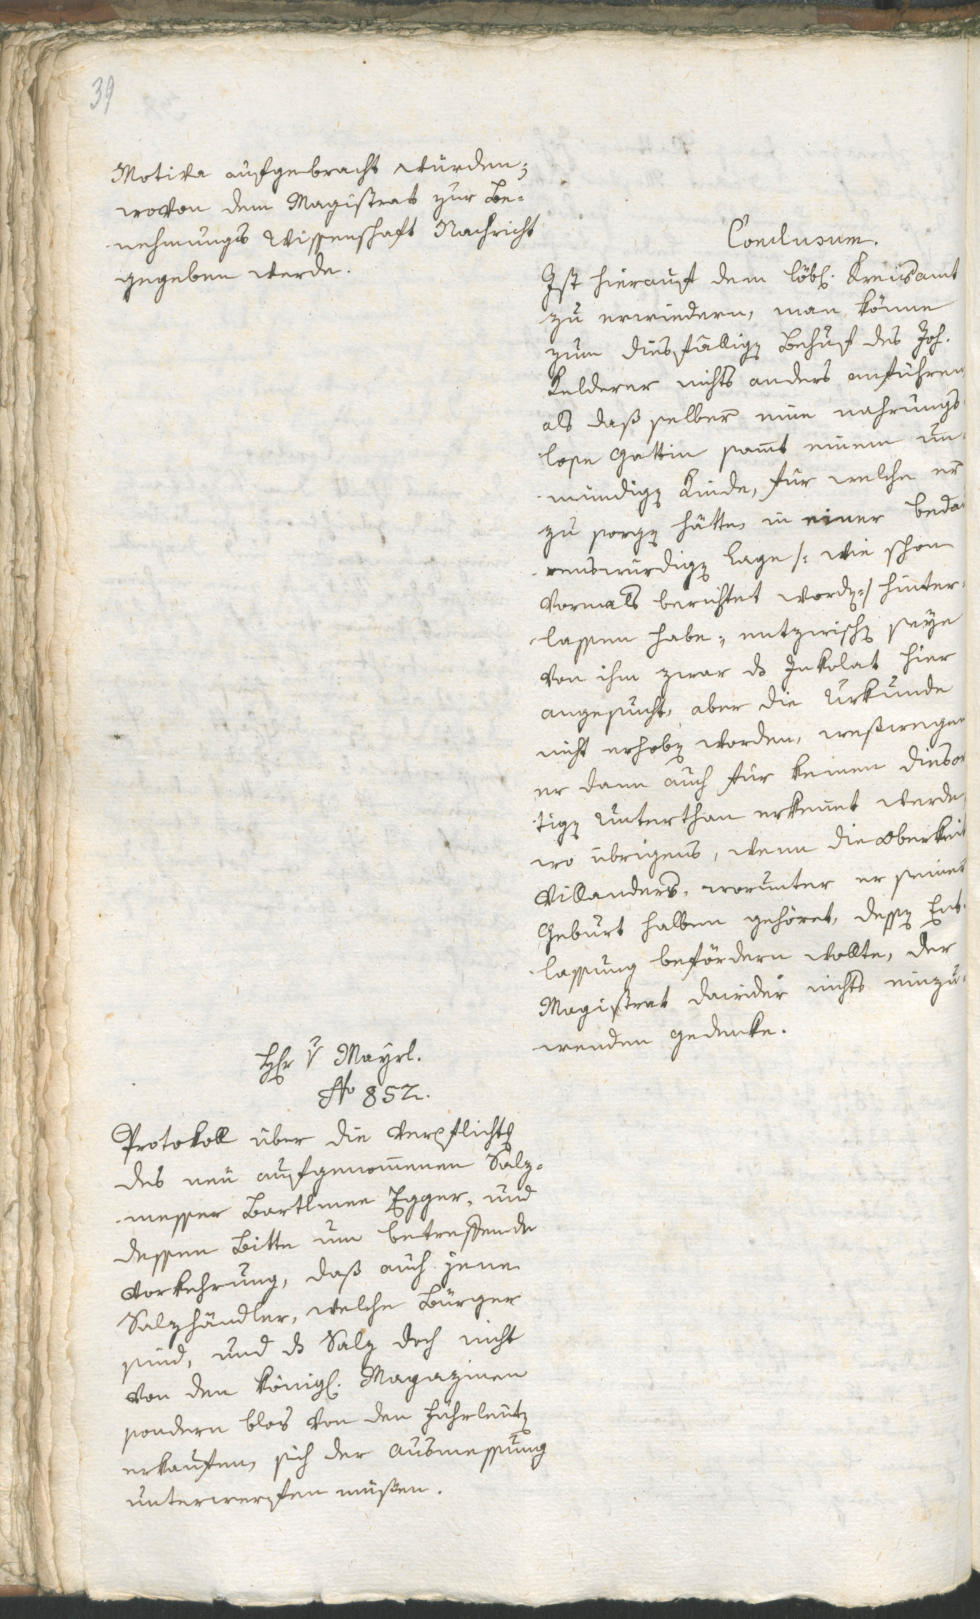 39
Motiva aufgebracht würden;
wovon dem Magistrat zur Be-
nehmungs Wissenschaft Nachricht
gegeben werde.
Conclusum.
Ist hierauf dem löbl. Kreisamt
zu erwiedern, man könne
zum diesfälligen Behuf des Joh.
Kelderer nichts anders anführen
als daß selber eine nahrungs
lose Gattin samt einem un-
mündigen Kinde, für welche er
zu sorgen hätte, in einer beda
renswürdigen Lage /: wie schon
vormals berichtet worden :/ hinter-
lassen habe; entzwischen seye
von ihm zwar das Inkolat hier
angesucht, aber die Urkunde
nicht erhoben worden, weßwegen
er dann auch für keinen dieso
tigen Unterthan erkennt werde,
wo übrigens, wenn die Oberkeit
Villanders, worunter er seiner
Geburt halben gehöret, dessen Ent-
lassung befördern wollte, der
Magistrat dawider nichts einzu-
wenden gedenke.
Hr v Mayrl.
No 852.
Protokoll über die Verpflichtung
des neu aufgenommenen Salz-
messer Bartlmee Egger, und
dessen Bitte um betreffende
Vorkehrung, daß auch jene
Salzhändler, welche Bürger
sind, und das Salz doch nicht
von den königl. Magazinen
sondern blos von den Fuhrleuten
erkaufen, sich der Ausmessung
unterwerfen müßen.